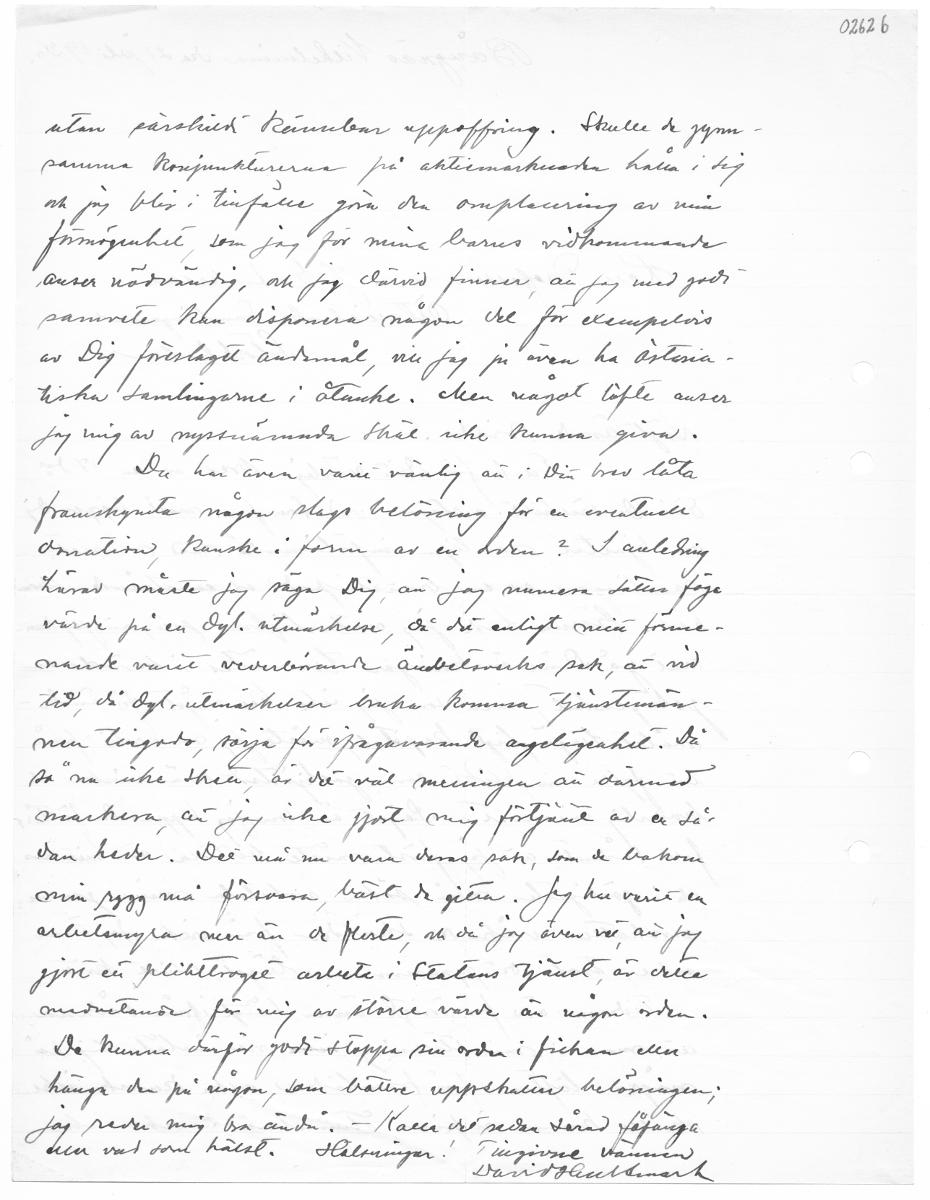 02626
utan särskildt kännbar uppoffring. Skulle de gynn-
samma konjunkturerna på aktiemarknaden hålla i sig
och jag blir i tillfälle göra den omplacering av min
förmögenhet, som jag för mina barns vidkommande
anser nödvändig, och jag därvid finner, att jag med godt
samvete kan disponera någon del för exempelvis
av Dig föreslaget ändamål, vill jag ju även ha Östasia-
tiska samlingarne i åtanke. Men något löfte anser
jag mig av nyssnämnda skäl icke kunna giva.
Du har även varit vänlig att i Din brev låta
framskymta någon slags belöning för en eventuell
donation, kanske i form av en orden? I anledning
härav måste jag säga Dig, att jag numera sätter föga
värde på en dyl. utmärkelse, då det enligt min förme-
nande varit vederbörande ämbetsverks sak, att vid
tid, då dyl. utmärkelser bruka komma tjänstemän-
nen tillgodo, sörja för ifrågavarande angelägenhet. Då
så nu icke skett, är det väl meningen att därmed
markera, att jag icke gjort mig förtjänt av en så-
dan heder. Det må nu vara deras sak, som de bakom
min rygg må försvara, bäst de gitta. Jag har varit en
arbetsmyra mer än de flesta, och då jag även vet, att jag
gjort ett plikttroget arbete i Statens tjänst, är detta
medvetande för mig av större värde än någon orden.
De kunna därför godt stoppa sin orden i fickan eller
hänga den på någon, som bättre uppskattar belöningen;
jag reder mig bra ändå. – Kalla det sedan sårad fåfänga
eller vad som hälst. Hälsningar! Tillgivne vännen
David Hultmark